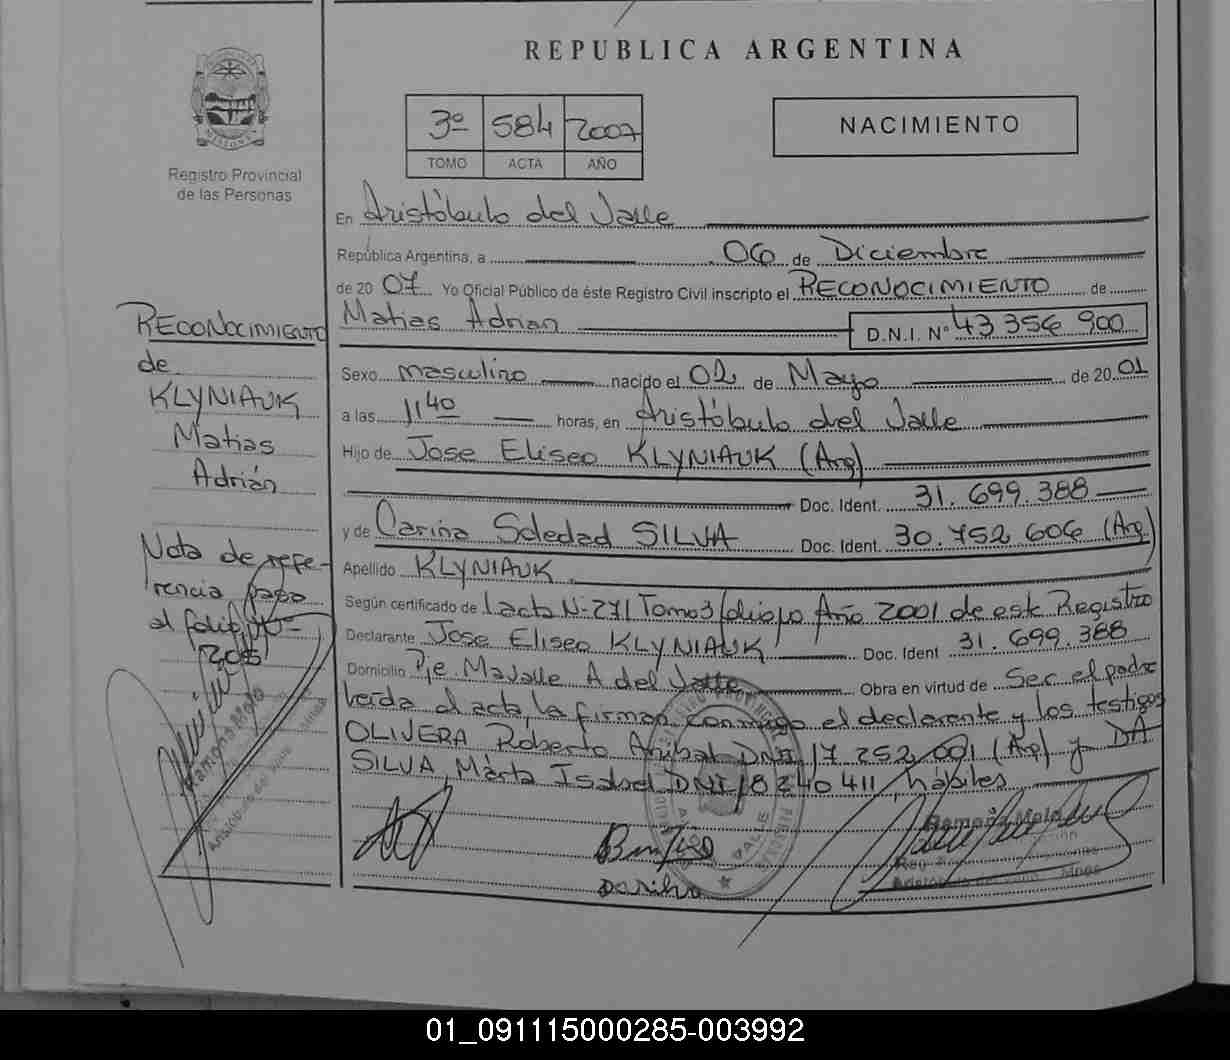 REPUBLICA ARGENTINA
3º 584 2007
TOMO ACTA AÑO
NACIMIENTO
MISIONES
Registro Provincial
de las Personas
En Aristóbulo del Valle
República Argentina, a 06 de Diciembre
de 20 07 Yo Oficial Público de éste Registro Civil inscripto el RECONOCIMIENTO de
Matias Adrian D.N.I. Nº 43 356 900
Sexo masculino nacido el 02 de Mayo de 20 01
a las 11 40 horas, en Aristóbulo del Valle
Hijo de Jose Eliseo KLYNIAUK (Arg)
Doc. Ident. 31.699.388
y de Cariña Soledad SILVA Doc. Ident. 30.752 606 (Arg)
Apellido KLYNIAUK
Según certificado de acta N-271 Tomo 3 Año 2001 de este Registro
Declarante Jose Eliseo KLYNIAUK Doc. Ident 31.699.388
Domicilio Pje. A del Valle Obra en virtud de Ser el padre
Leída el acta, la firman conmigo el declarante y los testigos
OLIVERA Roberto Anibal DNI 17 252 001 (Arg) y DA
SILVA, Marta Isabel DNI 18 240 411, hábiles
RECONOCIMIENTO
de
KLYNIAUK
Matias
Adrián
Nota de refe-
rencia pasa
al folio Nº
205
Ramona Melo
Aristóbulo del Valle
Ramona Melo
Aristóbulo del Valle Mnes
Da Silva
01_091115000285-003992